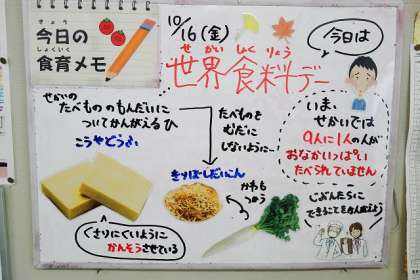 きょう
今日の
しょくいく
食育メモ
10/16(金)
せかいしょくりょう
世界食料デー
今日は
せかいの
たべもの のもんだいに
ついてかんがえるひ
こうやどうふ
たべものを
むだに
しないように…
きりぼしだいこん
かわも
つかう
くさりにくいように
かんそうさせている
いま、
せかいでは
9人に1人の人が
おなかいっぱい
たべられていません
じぶんたちに
できることを考えよう